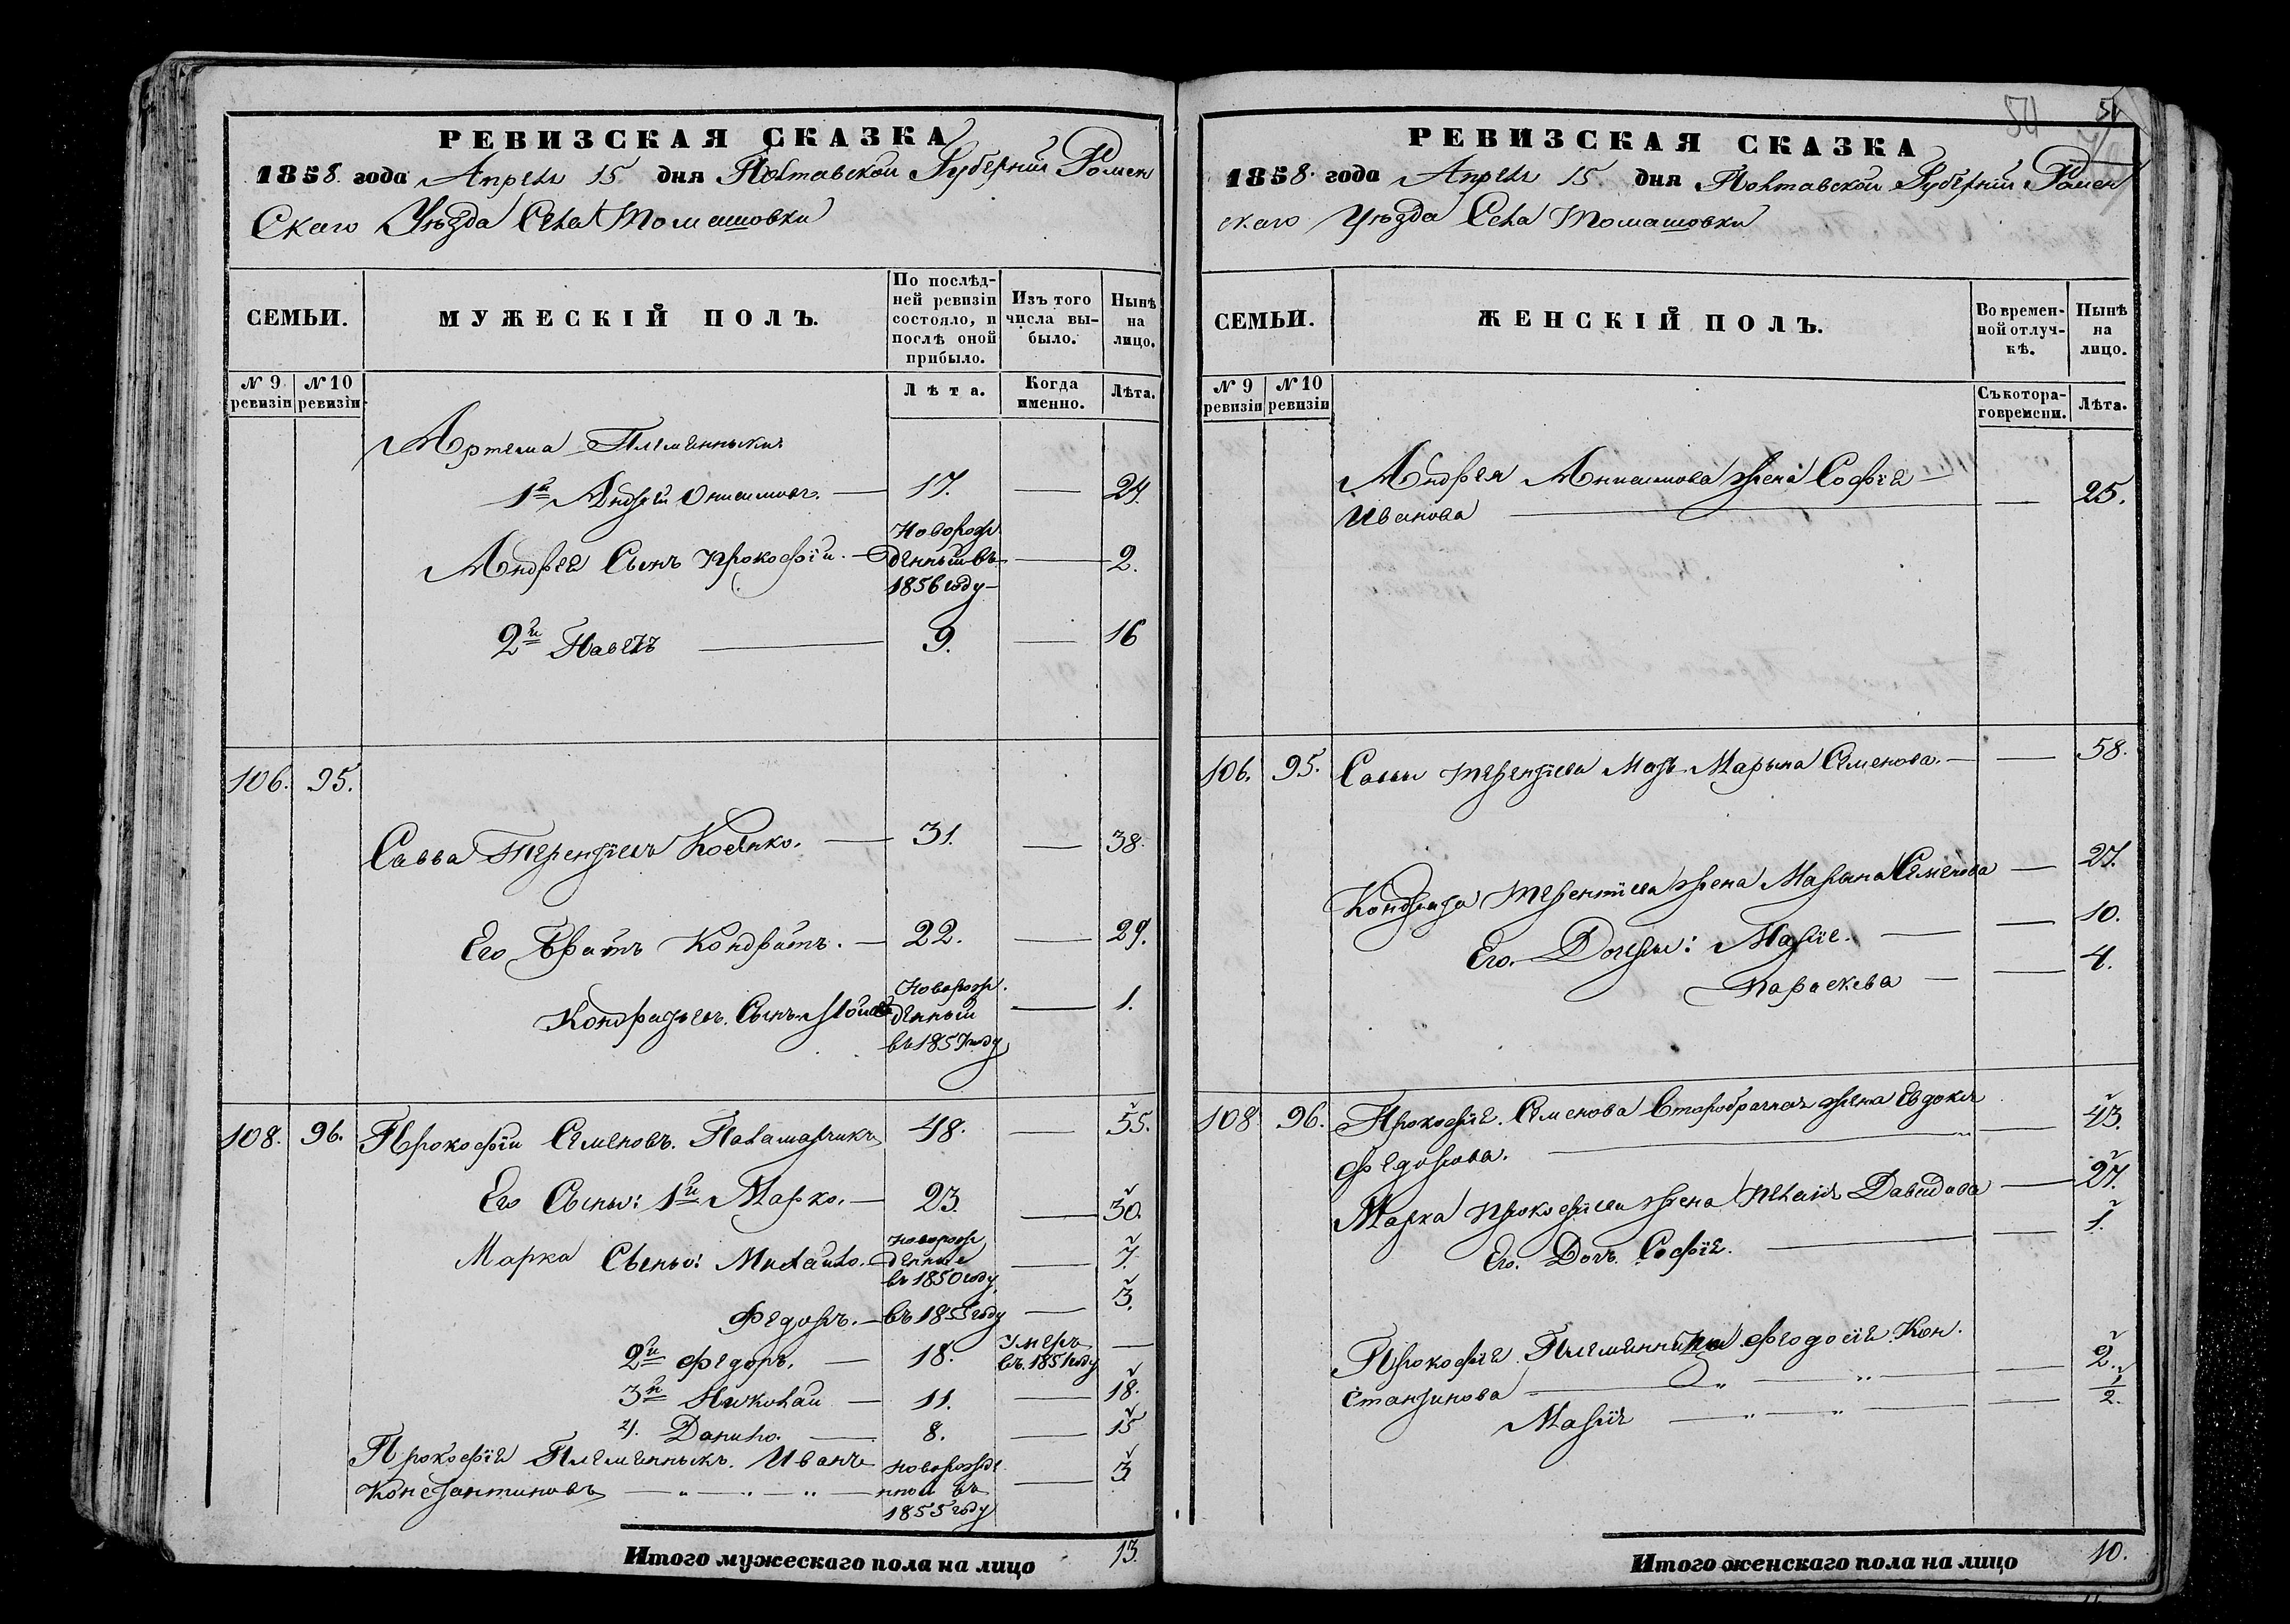 РЕВИЗСКАЯ СКАЗКА
1858. года Апреля 15 дня Полтавской Губерніи Ромен
Скаго Уѣзда Села Томашовки
СЕМЬИ.
МУЖЕСКІЙ ПОЛЪ.
По послѣд-
ней ревизіи
состояло, и
послѣ оной
прибыло.
Изъ того
числа вы-
было.
Нынѣ
на
лицо.
№ 9 ревизіи
№ 10 ревизіи
Лѣта.
Когда
именно.
Лѣта.
Артема Племянники
1й Андрей Онисимовъ. — 17. — 24.
Андрея Сынъ Прокофій. — Новорож
денный въ — 2.
1856 году —
2й Павелъ — 9. — 16
106. 95.
Савва Терентіевъ — 31. — 38.
Его Братъ Кондратъ. — 22. — 29.
Кондратьевъ Сынъ Новорож.
денный — 1.
въ 1857 году
108. 96. Прокофій Семеновъ. Паламарчикъ 48. — 55.
Его Сыны: 1й Марко. — 23. — 30.
Марка Сыны: Михайло. — новорож
денные — 7.
въ 1850 году
Федоръ. — въ 1855 году — 3.
2й Федоръ. — 18. Умеръ —
въ 1851 году
3й Николай — 11. — 18.
4. Данило. — 8. — 15
Прокофія Племянникъ. Иванъ новорожде — 3
Константиновъ — „ — „ — „ — нной въ
1855 году
Итого мужескаго пола на лицо 13.
54
РЕВИЗСКАЯ СКАЗКА
1858. года Апреля 15. дня Полтавской Губерніи Ромен
скаго Уѣзда Села Томашовки
СЕМЬИ.
ЖЕНСКІЙ ПОЛЪ.
Во времен-
ной отлуч-
кѣ.
Нынѣ
на
лицо.
№ 9 ревизіи
№ 10 ревизіи
Съ котора-
го времени.
Лѣта.
Андрея Анисимова жена Софія —
Иванова — — 25.
106. 95. Саввы Терентіева Мать Марына Семенова. — — 58.
Кондрата Терентіева жена Марына Семенова — 27.
Его. Дочери: Марія. — — 10.
Параскева — — 4.
108. 96. Прокофія. Семенова жена Евдокія
Федорова. — — 43.
Марка Прокофіева жена Пелагія Давидова — 27.
Его. Дочь. Софія. — — 1.
Прокофія Племянницы Феодосія. Кон.
стантинова — „ — „ — — 2.
Марія — „ — „ — — 1/2.
Итого женскаго пола на лицо 10.